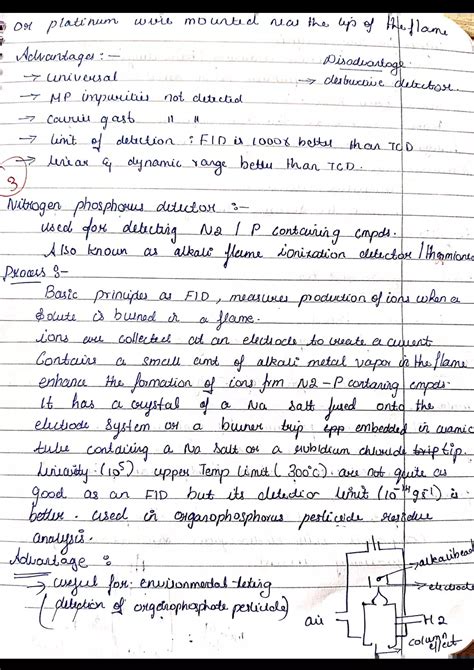 or platinum wire mounted near the tip of the flame
Advantages :-
Disadvantage
→ universal
→ destructive detector
→ MP impurities not detected
→ carrier gast " "
→ limit of detection : FID is 1000x better than TCD
→ linear & dynamic range better than TCD.
3
Nitrogen phosphorus detector :-
used for detecting N2 / P containing cmpds.
Also known as alkali flame ionization detector / thermionic
Process :-
Basic principles as FID, measures production of ions when a
solute is burned in a flame.
ions are collected at an electrode to create a current
Contains a small amt of alkali metal vapor in the flame
enhance the formation of ions frm N2-P containing cmpds.
It has a crystal of a Na salt fused onto the
electrode system or a burner trip embedded in ceramic
tube containing a Na salt or a rubidium chloride tip.
Linearity : (10⁵) upper Temp limit (300°C). are not quite as
good as an FID but its detection limit (10⁻¹⁴ gs⁻¹) is
better. used in organophosphorus pesticide residue
analysis.
Advantage :
→ useful for: environmental testing
(detection of organophosphate pesticide)
alkali bead
electrode
air
H2
column